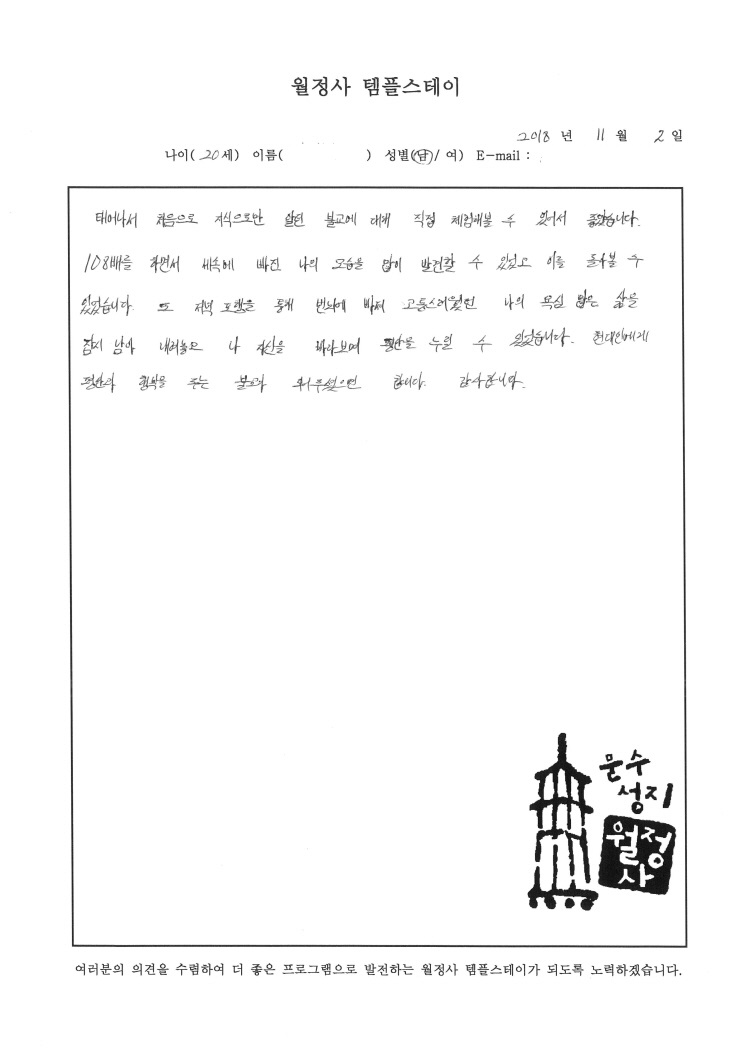 월정사 템플스테이
2018 년 11 월 2 일
나이( 20 세) 이름( ) 성별(남/ 여) E-mail :
태어나서 처음으로 지식으로만 알던 불교에 대해 직접 체험해볼 수 있어서 좋았습니다.
108배를 하면서 세속에 빠진 나의 모습을 많이 발견할 수 있었고 이를 돌아볼 수
있었습니다. 또 저녁 포행을 통해 번뇌에 빠져 고통스러웠던 나의 욕심 많은 삶을
잠시 남아 내려놓으 나 자신을 바라보며 평안를 누릴 수 있었습니다. 현대인에게
평안과 행복을 주는 불교가 되어주셨으면 합니다. 감사합니다.
문수
성지
월정
사
여러분의 의견을 수렴하여 더 좋은 프로그램으로 발전하는 월정사 템플스테이가 되도록 노력하겠습니다.